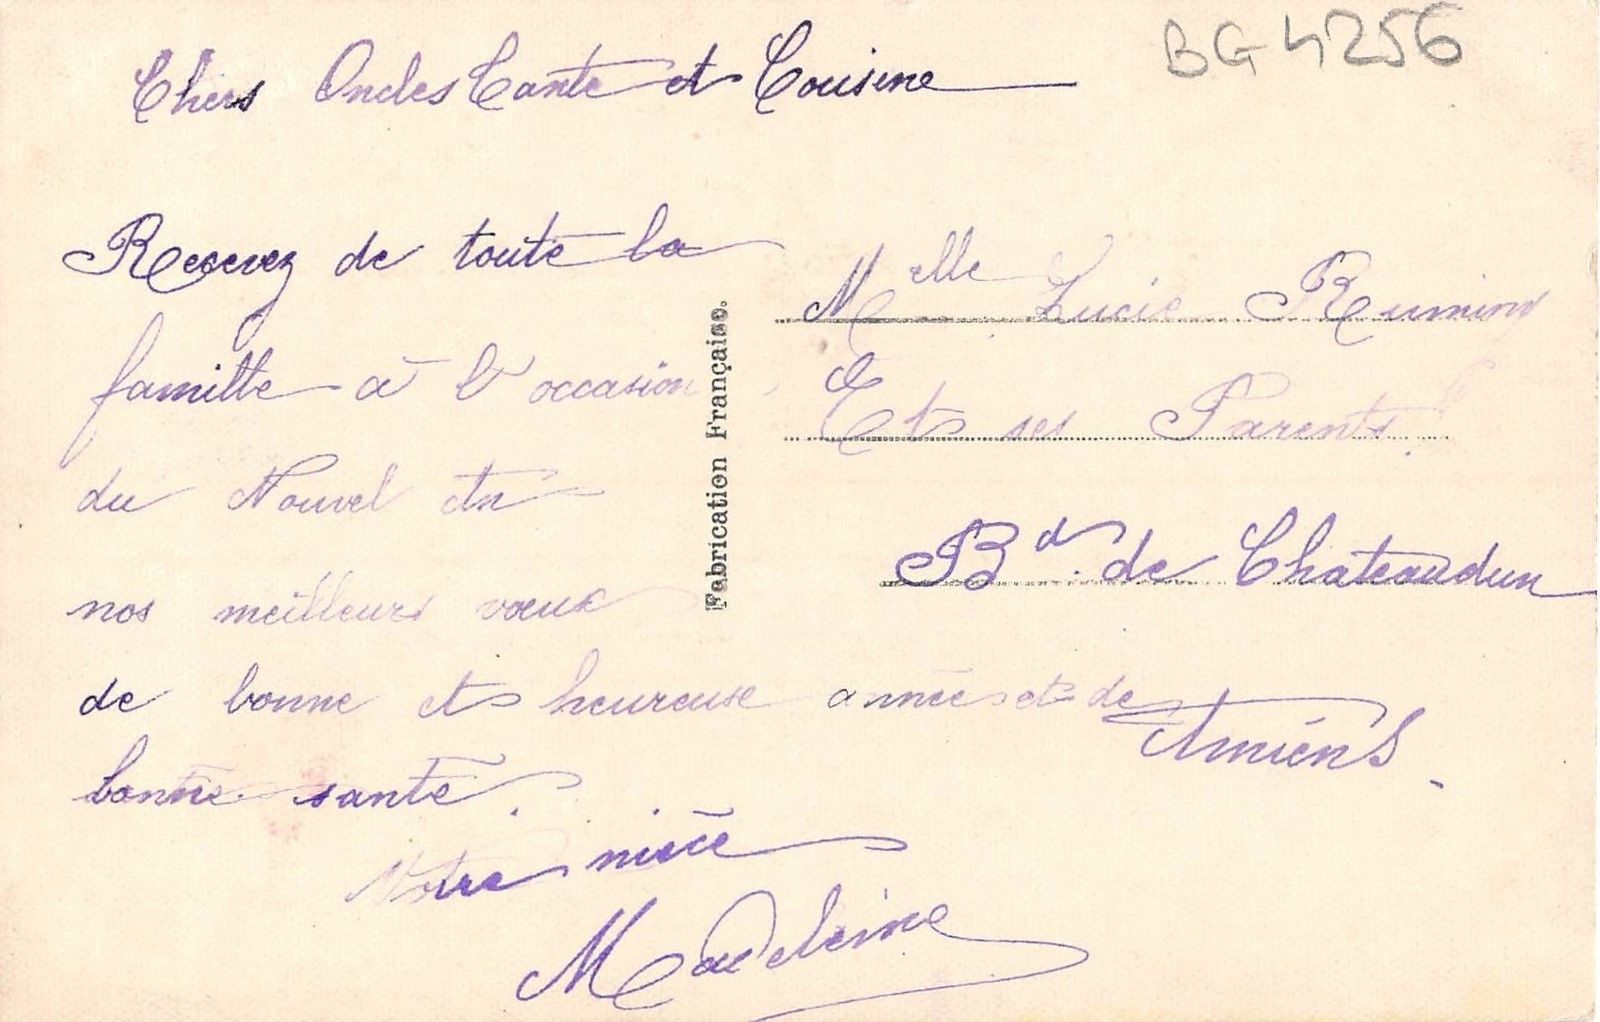 BG 4256
Chers Oncles Tante et Cousine
Recevez de toute la
famille à l'occasion
du Nouvel An
nos meilleurs vœux
de bonne et heureuse année et de
bonne santé.
Votre nièce
Madeleine
Fabrication Française.
Melle Lucie
Et ses Parents
Bd. de Chateaudun
Amiens